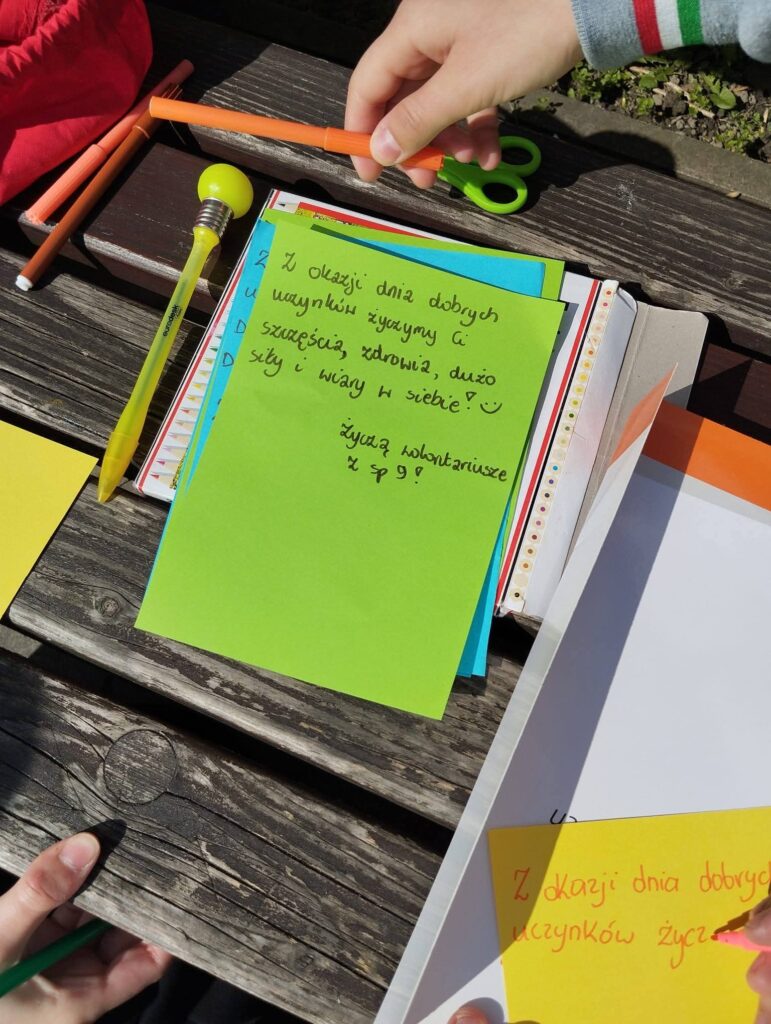 Z okazji dnia dobrych
uczynków życzymy Ci
szczęścia, zdrowia, dużo
siły i wiary w siebie! :)
życzą wolontariusze
z sp 9!
Z okazji dnia dobrych
uczynków życz